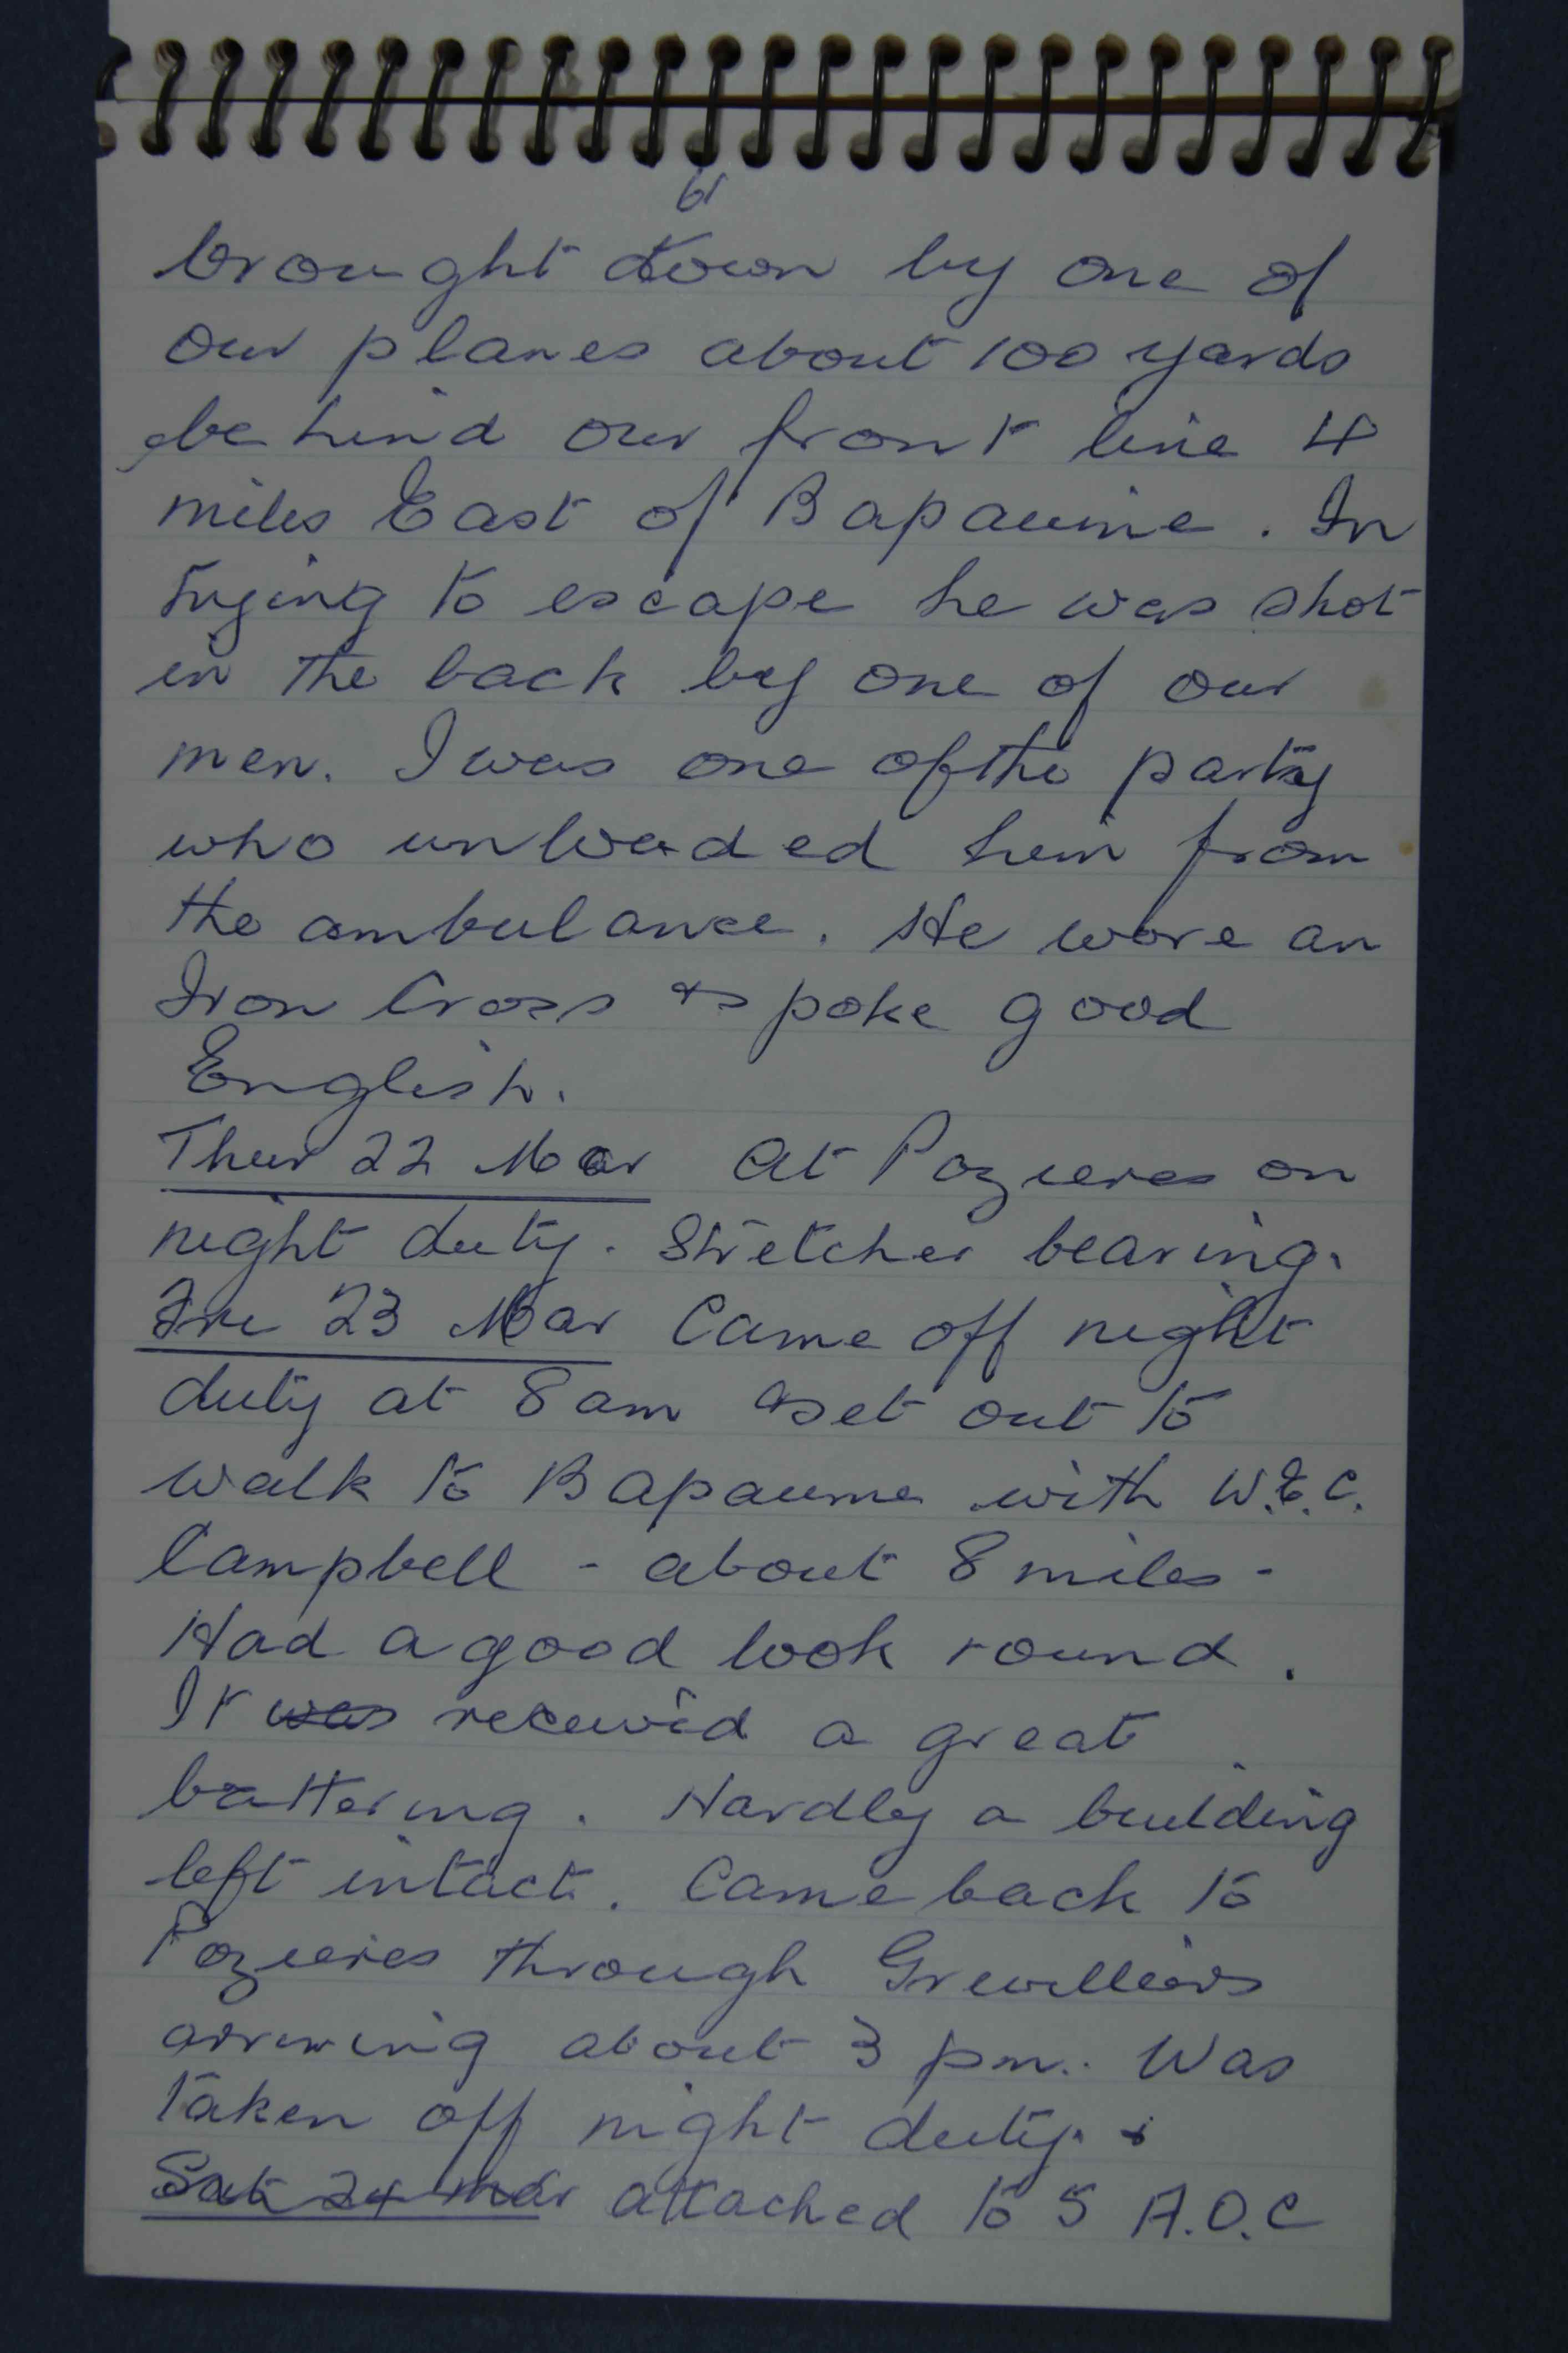 61
brought down by one of
our planes about 100 yards
behind our front line 4
miles East of Bapaume. In
trying to escape he was shot
in the back by one of our
men. I was one of the party
who unloaded him from
the ambulance. He wore an
Iron Cross & spoke good
English.
Thur 22 Mar at Pozieres on
night duty. Stretcher bearing.
Fri 23 Mar Came off night
duty at 8 am & set out to
walk to Bapaume with W.E.C.
Campbell - about 8 miles -
Had a good look round.
It was received a great
battering. Hardly a building
left intact. Came back to
Pozieres through Grevilliers
arriving about 3 pm. Was
taken off night duty. &
Sat 24 Mar attached to 5 A.O.C